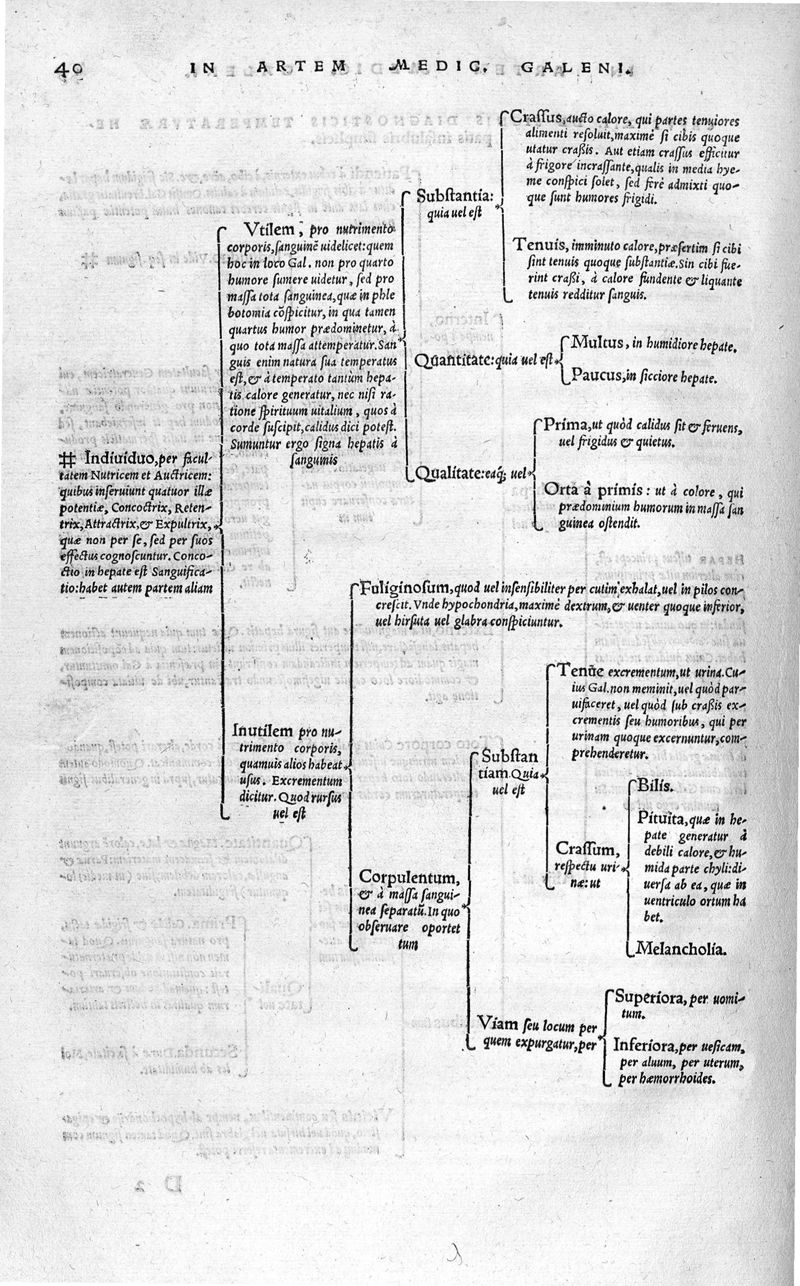 40 IN ARTEM MEDIC. GALENI.
⌗ Indiuiduo, per facul-
tatem Nutricem et Auctricem:
quibus inseruiunt quatuor illæ
potentiæ, Concoctrix, Reten-
trix, Attractrix, & Expultrix,
quæ non per se, sed per suos
effectus cognoscuntur. Conco-
ctio in hepate est Sanguifica-
tio: habet autem partem aliam
Vtilem, pro nutrimento
corporis, sanguinē uidelicet: quem
hoc in loco Gal. non pro quarto
humore sumere uidetur, sed pro
massa tota sanguinea, quæ in phle
botomia cōspicitur, in qua tamen
quartus humor prædominetur, à
quo tota massa attemperatur. San
guis enim natura sua temperatus
est, & à temperato tantùm hepa-
tis calore generatur, nec nisi ra-
tione spirituum uitalium, quos à
corde suscipit, calidus dici potest.
Sumuntur ergo signa hepatis à
sanguinis
Substantia:
quia uel est
Crassus, aucto calore, qui partes tenuiores
alimenti resoluit, maximè si cibis quoque
utatur crassis. Aut etiam crassus efficitur
à frigore incrassante, qualis in media hye-
me conspici solet, sed ferè admixti quo-
que sunt humores frigidi.
Tenuis, imminuto calore, præsertim si cibi
sint tenuis quoque substantiæ. Sin cibi fue-
rint crassi, à calore fundente & liquante
tenuis redditur sanguis.
Quantitate: quia uel est
Multus, in humidiore hepate.
Paucus, in sicciore hepate.
Qualitate: eaq; uel
Prima, ut quòd calidus sit & feruens,
uel frigidus & quietus.
Orta à primis: ut à colore, qui
prædominium humorum in massa san
guinea ostendit.
Inutilem pro nu-
trimento corporis,
quamuis alios habeat
usus. Excrementum
dicitur. Quod rursus
uel est
Fuliginosum, quod uel insensibiliter per cutim exhalat, uel in pilos con-
crescit. Vnde hypochondria, maximè dextrum, & uenter quoque inferior,
uel hirsuta uel glabra conspiciuntur.
Corpulentum,
& à massa sangui-
nea separatū. In quo
obseruare oportet
tum
Substan
tiam. Quia
uel est
Tenue excrementum, ut urina. Cu-
ius Gal. non meminit, uel quòd par-
uifaceret, uel quòd sub crassis ex-
crementis seu humoribus, qui per
urinam quoque excernuntur, com-
prehenderetur.
Crassum,
respectu uri-
næ: ut
Bilis.
Pituita, quæ in he-
pate generatur à
debili calore, & hu-
mida parte chyli: di-
uersa ab ea, quæ in
uentriculo ortum ha
bet.
Melancholia.
Viam seu locum per
quem expurgatur, per
Superiora, per uomi-
tum.
Inferiora, per uesicam,
per aluum, per uterum,
per hæmorrhoides.